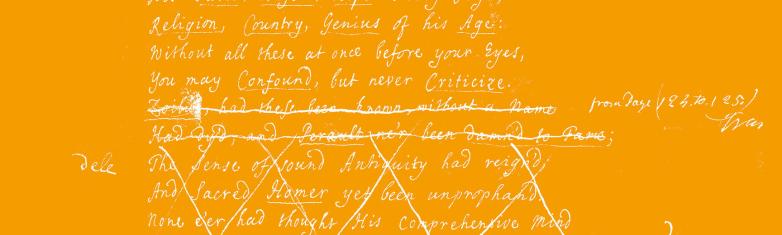 Religion, Country, Genius of his Age:
Without all these at once before your Eyes,
You may Confound, but never Criticize.
Zoilus had these been known, without a Name
Had dy'd, and Perault ne'er been damn'd to Fame;
dele
The Sense of sound Antiquity had reign'd,
And Sacred Homer yet been unprophan'd
None e'er had thought His Comprehensive Mind